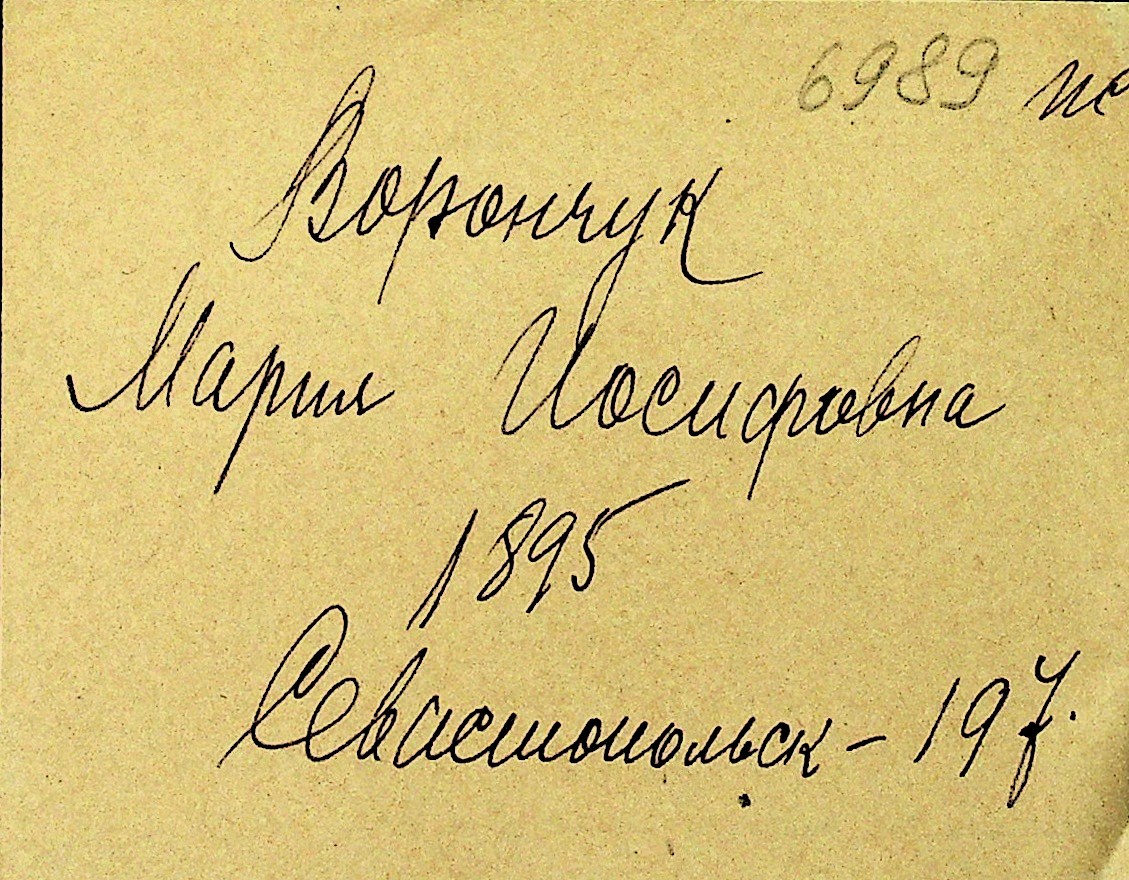 6989 пс
Ворончук
Мария Иосифовна
1895
Севастопольск - 197.